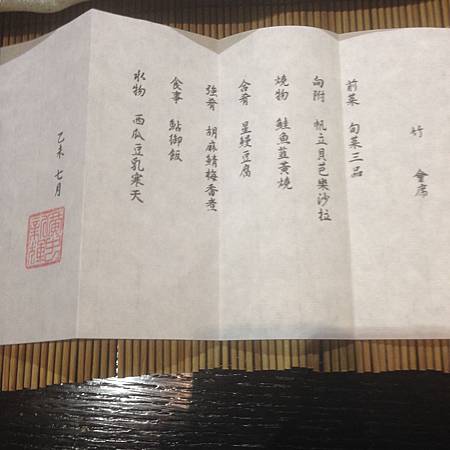 竹　會席
前菜　旬菜三品
向附　帆立貝芭樂沙拉
燒物　鮭魚蓝黃燒
合肴　星鰻豆腐
強肴　胡麻鯖梅香煮
食事　鮎御飯
水物　西瓜豆乳寒天
乙未　七月